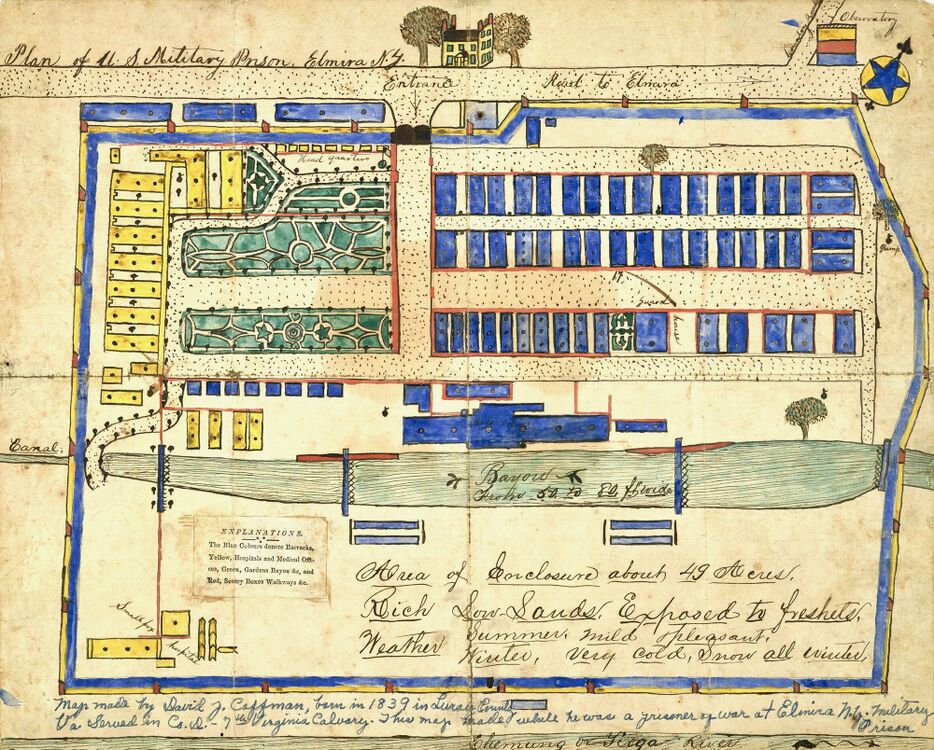 Plan of U S Military Prison, Elmira N.Y
Observatory
Entrance
Road to Elmira
Head quarters
pump
guard
house
Canal.
Bayou
From 50 to 80 ft wide
EXPLANATIONS.
The Blue Colours denote Barracks,
Yellow, Hospitals and Medical Offi-
ces, Green, Gardens Bayou &c, and
Red, Sentry Boxes Walkways &c.
Area of Enclosure about 49 Acres.
Rich Low-Lands. Exposed to freshets.
Weather Summer, mild & pleasant.
Winter, very cold, Snow all winter.
Smallpox
hospital
Map made by David J. Coffman, born in 1839 in Luray County
Va. Served in Co. D. 7th Virginia Calvary. This map made while he was a prisoner of war at Elmira N.Y. Military
Prison
Chemung or Tioga River